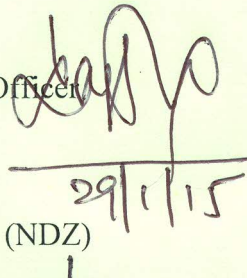 Officer
29/1/15
(NDZ)